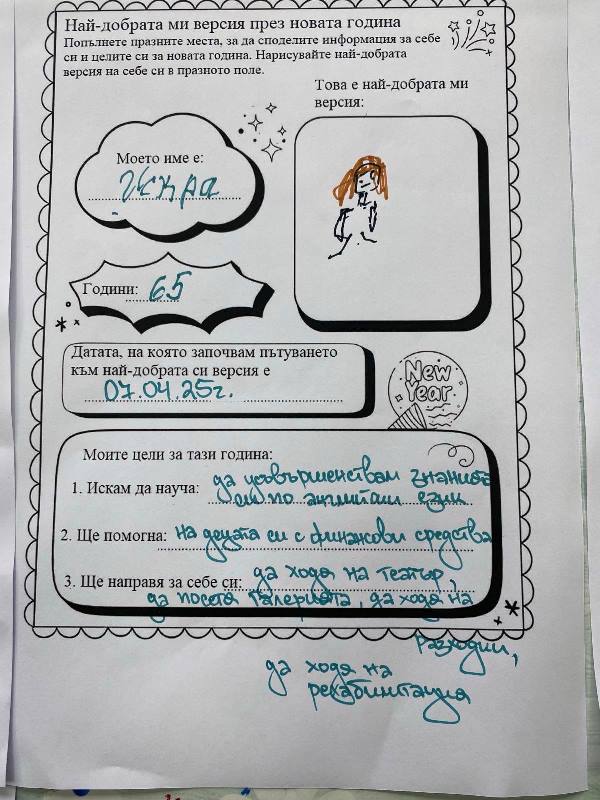 Най-добрата ми версия през новата година
Попълнете празните места, за да споделите информация за себе
си и целите си за новата година. Нарисувайте най-добрата
версия на себе си в празното поле.
Това е най-добрата ми
версия:
Моето име е:
Искра
Години: 65
Датата, на която започвам пътуването
към най-добрата си версия е
07.04.25г.
New
Year
Моите цели за тази година:
1. Искам да науча: да усъвършенствам знанията
си по английски език
2. Ще помогна: на децата си с финансови средства
3. Ще направя за себе си: да ходя на театър,
да посетя галерията, да ходя на
разходки,
да ходя на
рехабилитация